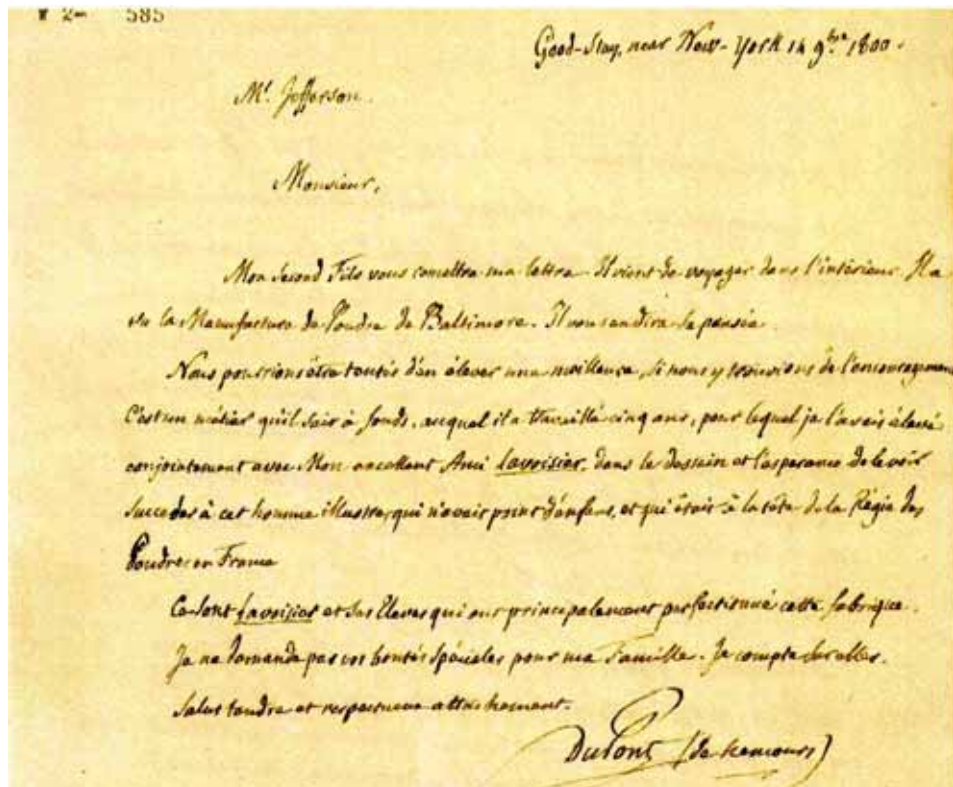 585
Good-Stay, near New-York 14 9bre 1800.
Mr. Jefferson.
Monsieur,
Mon second Fils vous remettra ma lettre. Il vient de voyager dans l'intérieur. Il a
vu la Manufacture de Poudre de Baltimore. Il vous en dira sa pensée.
Nous pourrions être tentés d'en élever une meilleure, si nous y trouvions de l'encouragement
C'est un métier qu'il sait à fonds, auquel il a travaillé cinq ans, pour lequel je l'avais élevé
conjointement avec Mon excellent Ami Lavoisier, dans le dessein et l'espérance de le voir
succeder à cet homme illustre, qui n'avait point d'enfans, et qui était à la tête de la Régie des
Poudres en France
Ce sont Lavoisier et ses Eleves qui ont principalement perfectionné cette fabrique.
Je ne demande pas vos bontés spéciales pour ma Famille. Je compte sur elles.
Salut tendre et respectueux attachement.
DuPont (de Nemours)